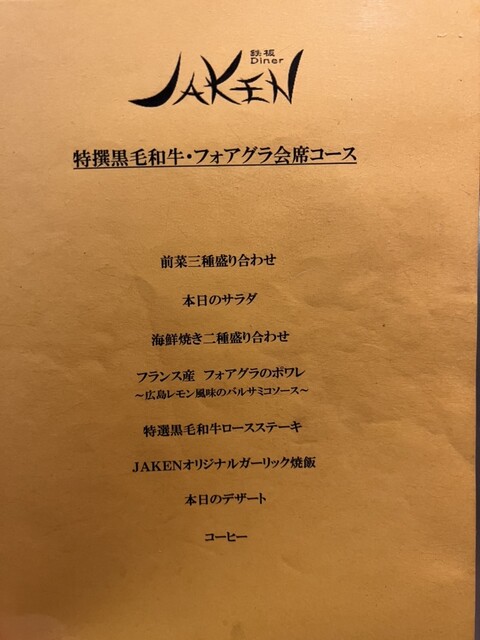 鉄板
Diner
JAKEN
特撰黒毛和牛・フォアグラ会席コース
前菜三種盛り合わせ
本日のサラダ
海鮮焼き二種盛り合わせ
フランス産 フォアグラのポワレ
～広島レモン風味のバルサミコソース～
特選黒毛和牛ロースステーキ
JAKENオリジナルガーリック焼飯
本日のデザート
コーヒー